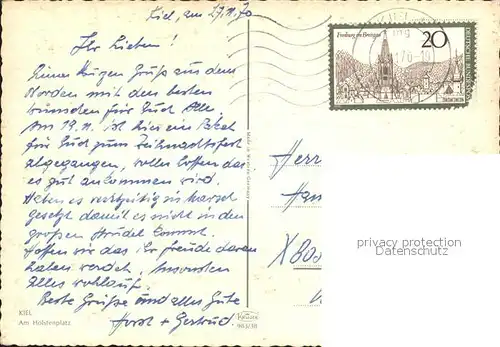 Kiel, am 27.11.70
Ihr Lieben!
Einen kurzen Gruß aus dem
Norden mit den besten
Wünschen für Euch Alle.
Am 19.11. ist hier ein Paket
für Euch zum Weihnachtsfest
abgegangen, wollen hoffen das
es gut ankommen wird.
Haben es rechtzeitig in Marsch
gesetzt damit es nicht in den
großen Strudel kommt.
Hoffen wir das Ihr Freude daran
haben werdet. Ansonsten
Alles wohlauf.
Beste Grüße und alles Gute
Horst + Gertrud
KIEL
Am Holstenplatz
KRÜGER
983/38
Freiburg im Breisgau
20
DEUTSCHE BUNDESPOST
Herr
Han
X80
privacy protection
Datenschutz